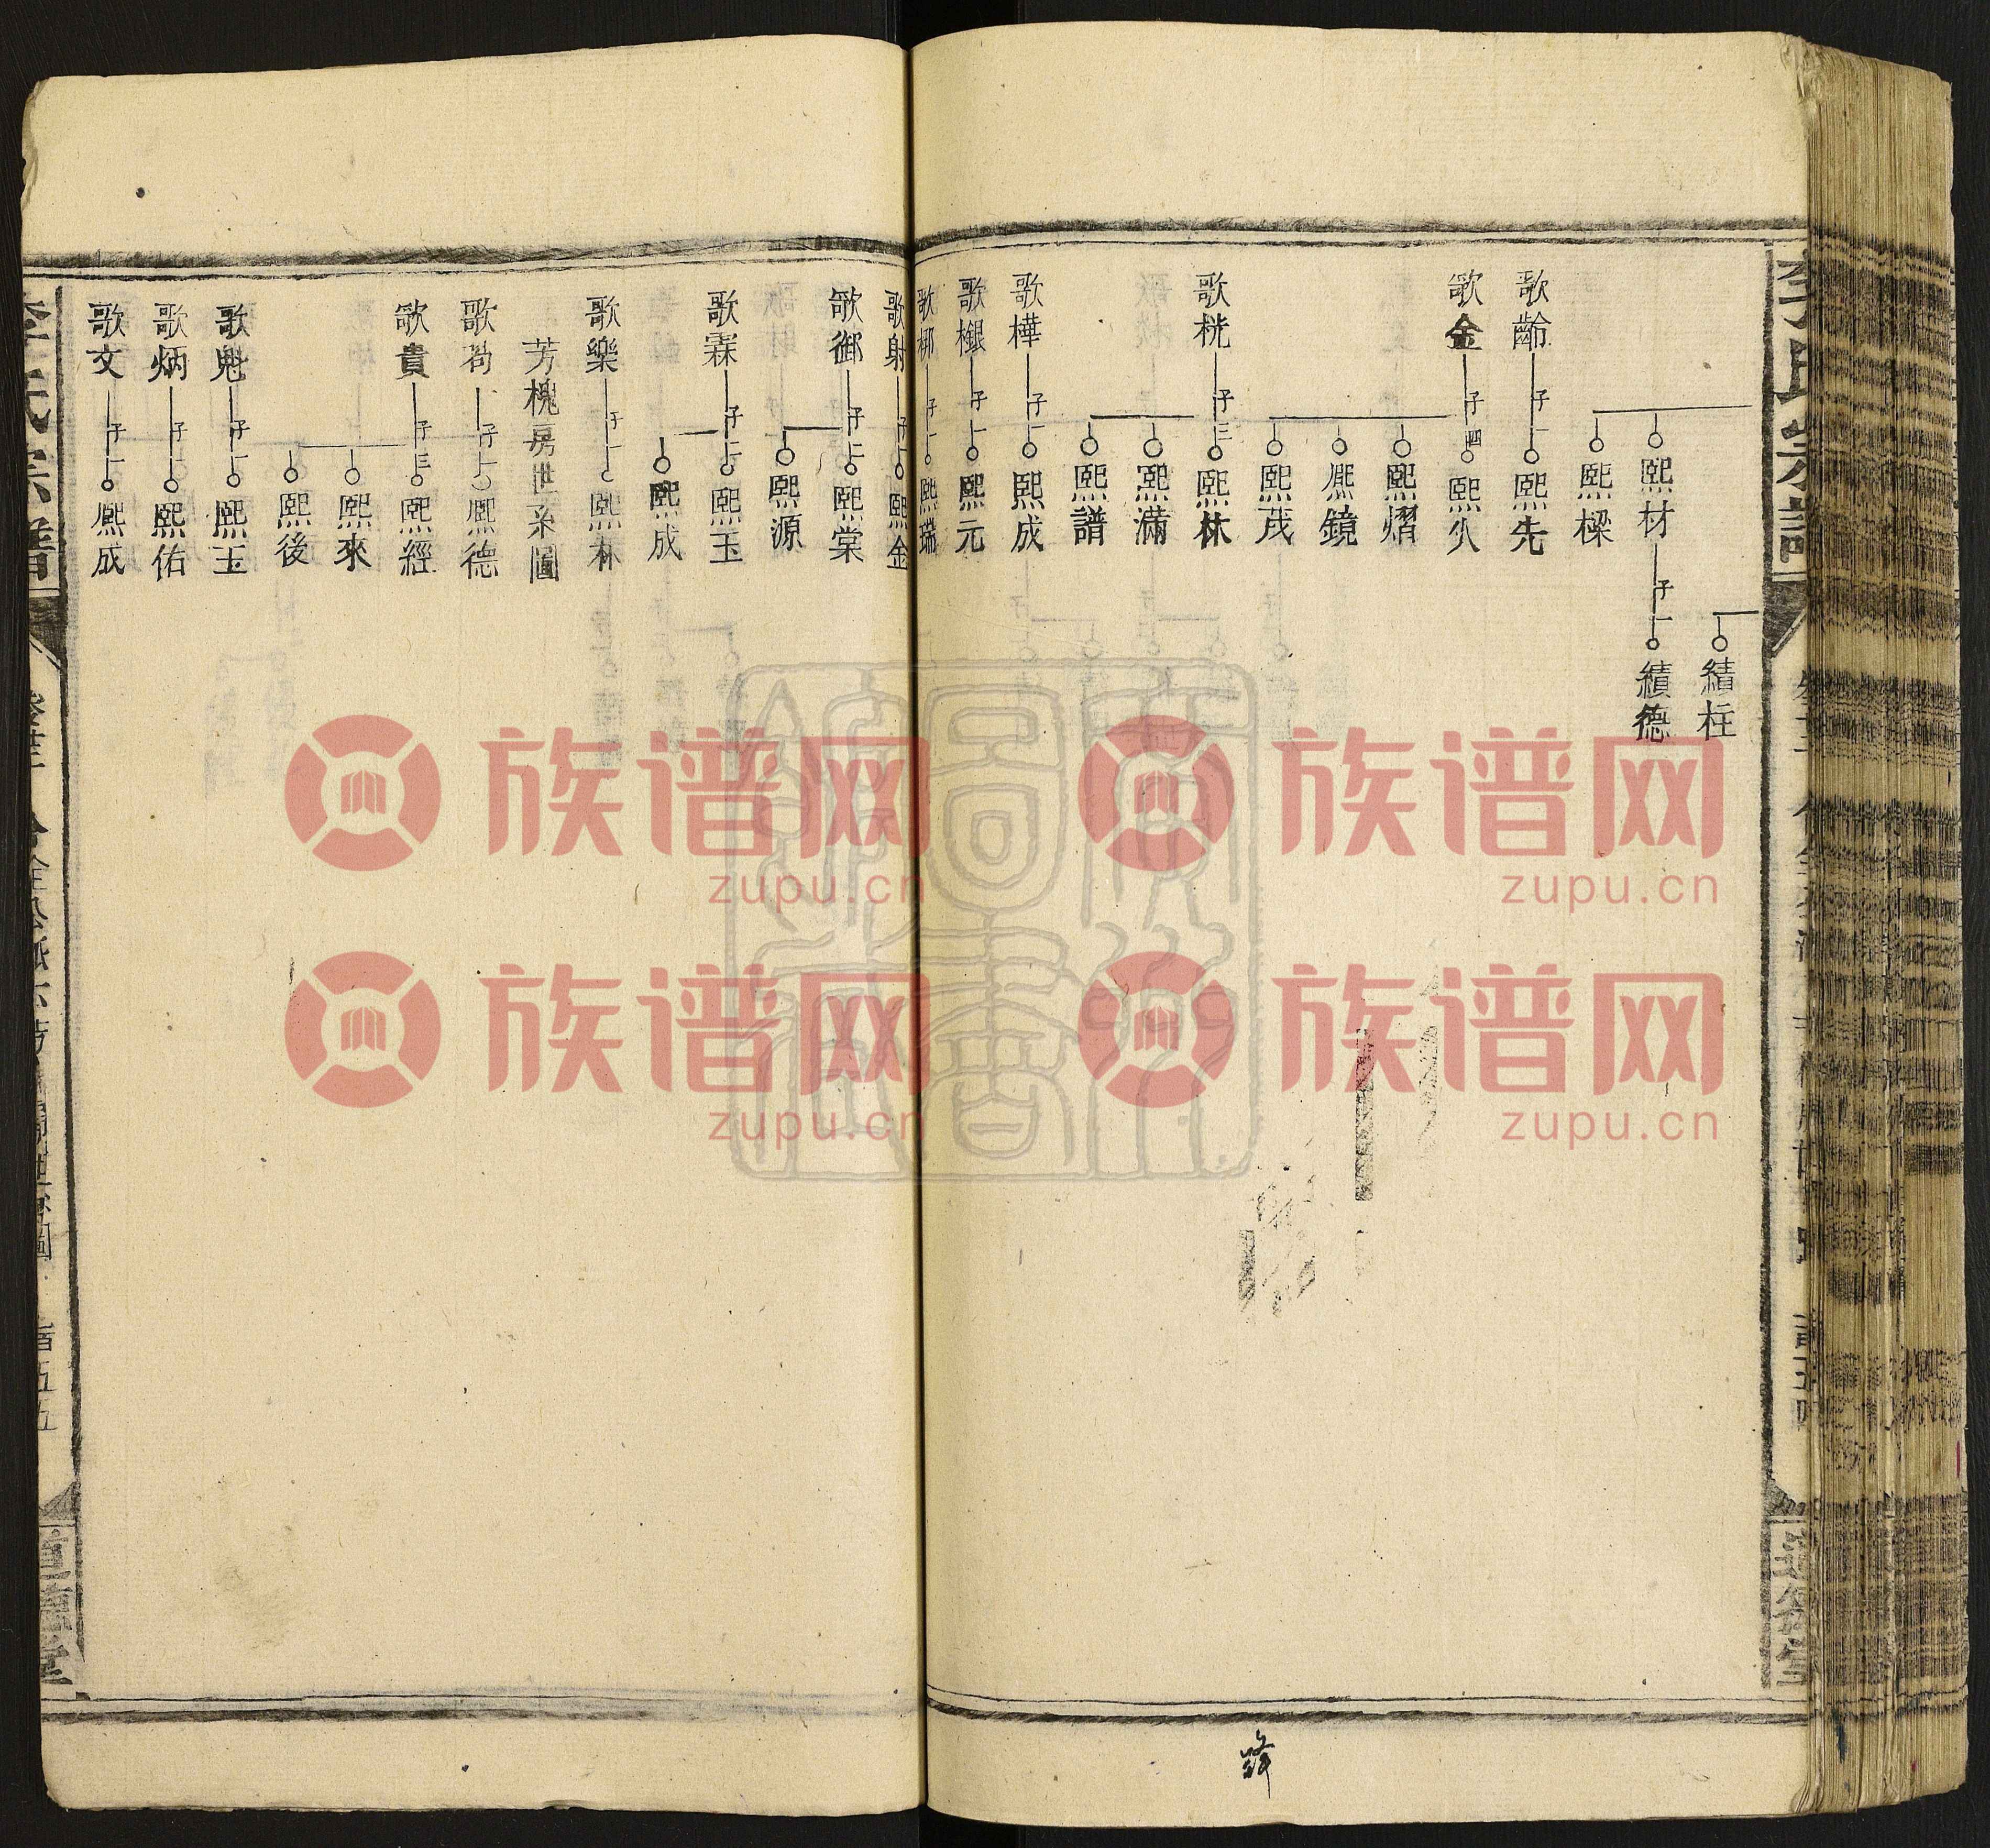 績柱
熙材 子一 績德
熙樑
歌齡 子一 熙先
歌金 子四 熙久
熙熠
熙鏡
熙茂
歌桄 子三 熙林
熙滿
熙譜
歌樺 子一 熙成
歌橌 子一 熙元
歌梆 子一 熙瑞
歌射 子一 熙金
歌御 子二 熙棠
熙源
歌霖 子二 熙玉
熙成
歌樂 子一 熙林
芳槐房世系圖
子一 熙德
歌貴 子三 熙經
熙來
熙後
歌魁 子一 熙玉
歌炳 子一 熙佑
歌文 子一 熙成
李氏宗譜
道德堂
族谱网
zupu.cn
族谱网
zupu.cn
族谱网
zupu.cn
族谱网
zupu.cn